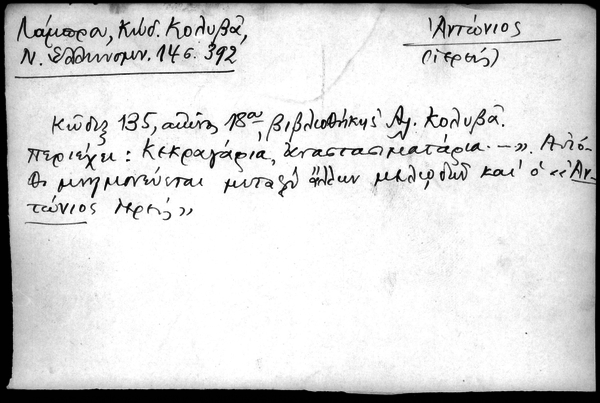 Λάμπρου, Κώδ. Κολυβᾶ,
Ν. Ἑλληνομν. 14 σ. 392
Ἀντώνιος
(ἱερεύς)
Κῶδιξ 135, αἰῶνος 18ου, βιβλιοθήκης Ἀλ. Κολυβᾶ.
Περιέχει: Κεκραγάρια, ἀναστασιματάρια. —». Αὐτό-
θι μνημονεύεται μεταξὺ ἄλλων μελῳδῶν καὶ ὁ «Ἀν-
τώνιος ἱερεύς»